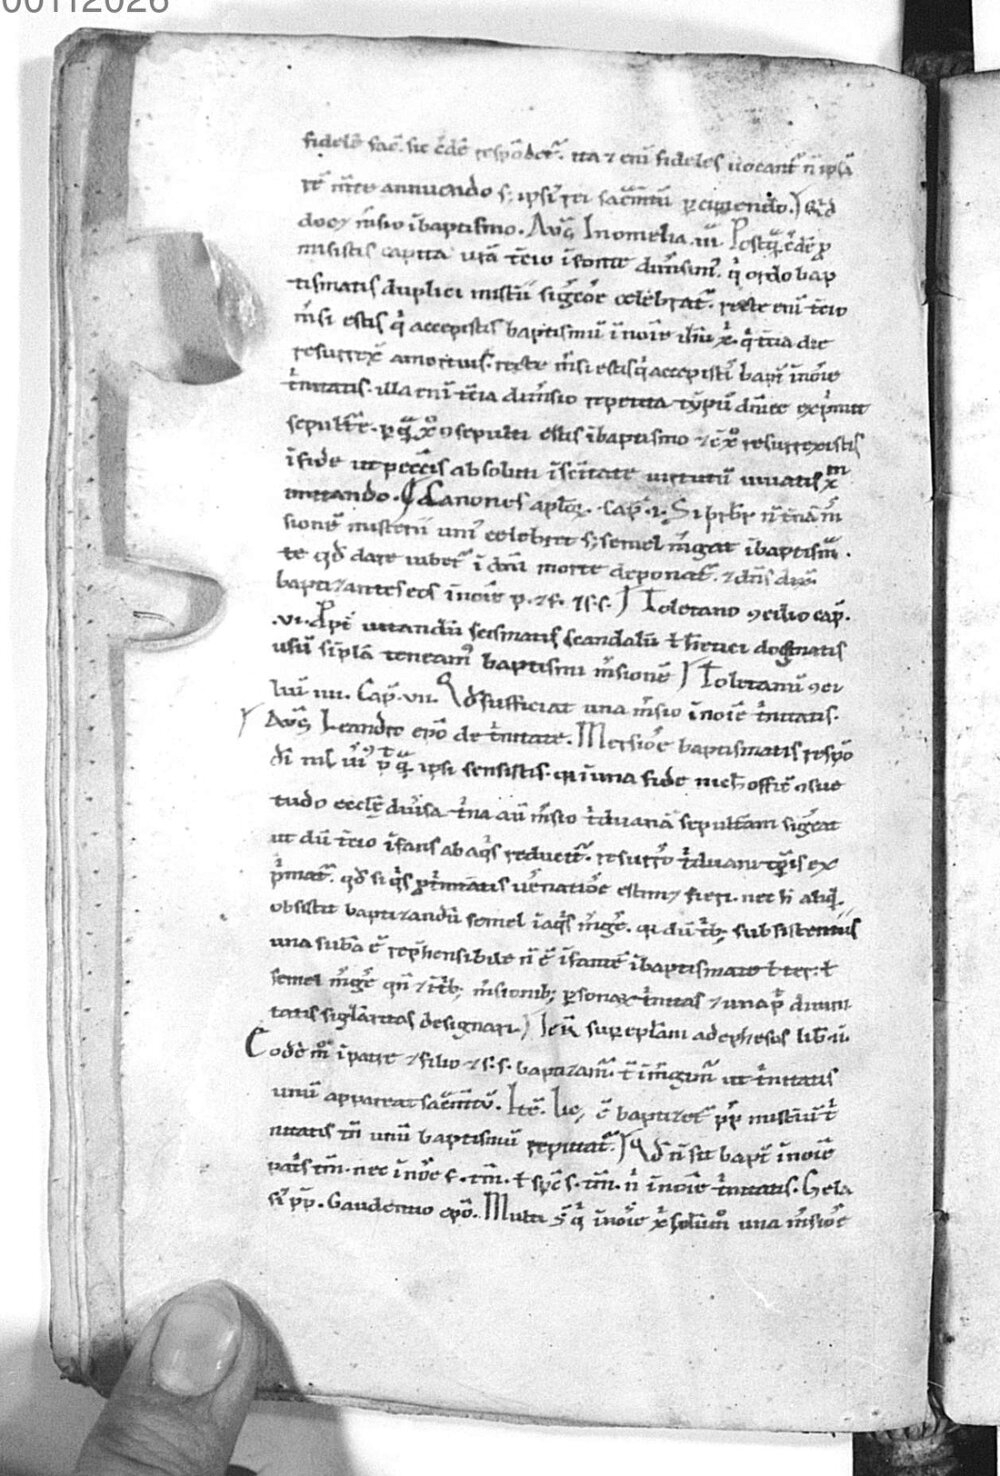 00112026
fidelē sac̄. sic c̄dē respōdet᷑. ita ⁊ eni fideles uocant᷑ n̄ ipsā
rē m̄te annuendo s; ipsi᷑ rei sac̄m̄tū
doc; m̄sio ībaptismo. Auḡ Inomelia .iii. Postq̄. c̄dē p̱
misistis capita ur̄a t̄cio īfonte dim̄sim᷒. q̇ ordo bap
tismatis duplici mistīī sigc̄oē celebrat᷑. recte eni t̄cio
m̄si estis q̇ accepistis baptismū īnoīe ih̄u x̄. q̇ t̄cia die
resurrex̄ amortuis. recte m̄si estis q̇ accepisti᷑ bapt᷑ īnoīe
t̄nitatis. illa eni t̄cia dim̄sio repetita typū dn̄ice exp̄mit
sepult̄e. p̱ q̄ x̄o ꝯsepulti estis ībaptismo ⁊ c̄ x̄o resurrexistis
īfide ut pecc̄is absoluti īsc̄itate uirtutū uiuatis x̄m
imitando. Canones apl̄oꝝ. cap̄. i. Si pr̄br n̄ t̄nā m̄
sionē misterii uni᷒ celebret s; semel m̄gat ībaptism̄.
te qd̄ dare iubet᷑ ī dn̄i morte deponat᷑. ⁊ dn̄s
baptizantes eos īnoīe p. ⁊ f. ⁊ s. s. Toletano ꝯcilio cap̄.
.vi. Ppt̄ uitandū scismatis scandalū ł h̄etici dogmatis
usū siplā teneam᷒ baptismi m̄sionē Toletanū ꝯci
liū iiii. Cap̄. vii. Qd̄ sufficiat una m̄sio īnoīe t̄nitatis.
Auḡ Leandro ep̄o de t̄nitate. Mersiōe baptismatis respō
di᷑ nil ipsi sensistis. q̇ īuna fide nich̄ offic̄ ꝯsue
tudo eccl̄ę diu̇sa t̄na aū m̄sio t̄duanā sepult̄am sigc̄at
ut dū t̄cio īfans ab aq̇s reducit᷑. resurr̄o t̄duani tp̄is ex
p̄mat᷑. qd̄ si q̇s p̱ t̄nitatis uēnatiōe estim; fieri. nec h̄ aliq̇.
obsistit baptizandū semel īaq̇s m̄gē. q̇ dū t̄b; subsistentiis
una sub̄a ē rep̱hensibile n̄ ē īfantē ībaptismate ł ter. ł
semel m̄gē qn̄ ⁊ īt̄b; m̄sionib; p̱sonaꝝ t̄nitas ⁊ una p̄ diuini
tatis siglāritas designari. Ier̄ sup̱ epl̄am ad ephesios lib̄. ii.
Eodē m̄ īpatre ⁊ filio ⁊ s. s. baptizam᷒. t̄ īm̄gim᷒ ut t̄nitatis
unū appareat sac̄m̄tū. Itē. lic; t̄ baptizet᷑ pp̄ mist̄iū t̄
nitatis tn̄ unū baptismū reputat᷑. Qd̄ n̄ sit bapt᷑ īnoīe
pat̄s tm̄. nec īnoīe f. tm̄. ł sp̄c s. tm̄. n̄ īnoīe t̄nitatis. Gela
si᷒ pp̄. Gaudentio ep̄o. Multi s̄ q̇ īnoīe x̄ solūm᷒ una m̄siōe